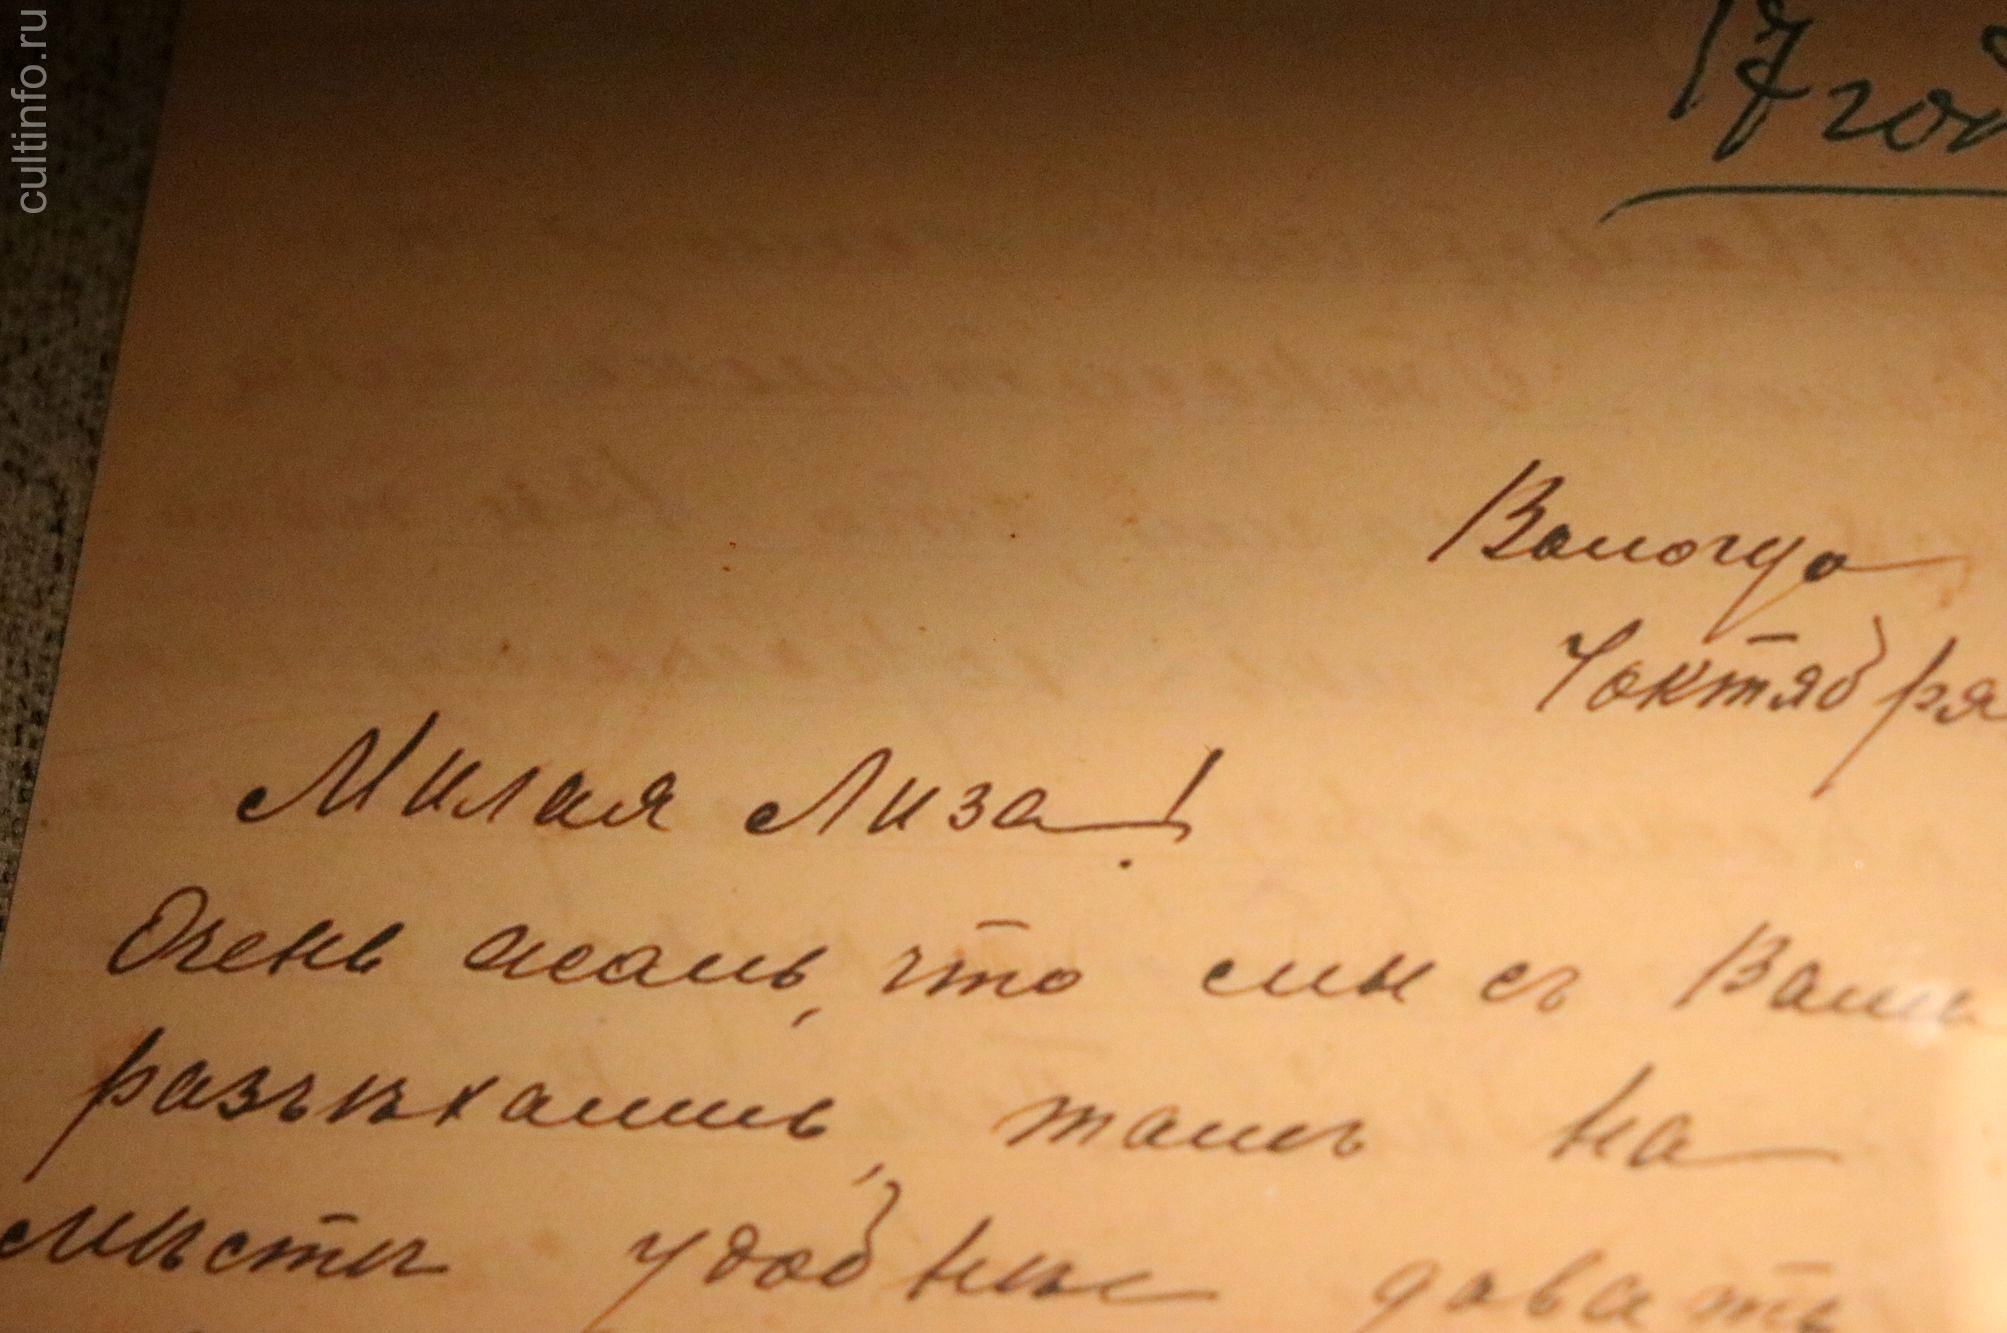 cultinfo.ru
17 год
Вологда
4 октября
Милая Лиза!
Очень жаль, что мы съ Вами
разъѣхались, тамъ на
мѣстѣ удобнѣе давать